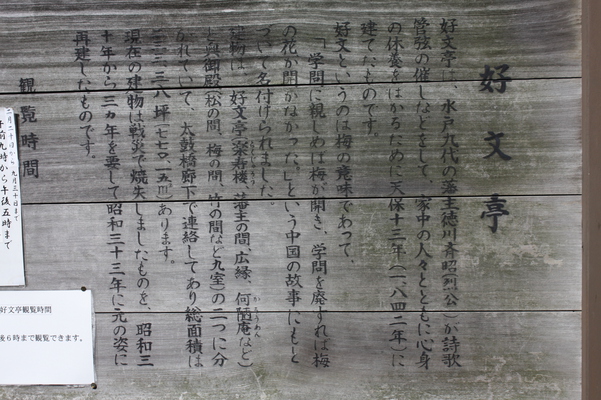 好文亭
好文亭は、水戸九代の藩主徳川斉昭(烈公)が詩歌
管弦の催しなどをして、家中の人々とともに心身
の休養をはかるために天保十三年(一八四二年)に
建てたものです。
好文というのは梅の意味であって、
「学問に親しめば梅が開き、学問を廃すれば梅
の花が開かなかった。」という中国の故事にもと
づいて名付けられました。
建物は、好文亭(楽寿楼、藩主の間、広縁、何陋庵など)
かろうあん
と奥御殿(松の間、梅の間、竹の間など九室)の二つに分
かれていて、太鼓橋廊下で連絡してあり総面積は
二三三・八坪(七七〇・五㎡)あります。
現在の建物は戦災で焼失しましたものを、昭和三
十年から三ヵ年を要して昭和三十三年に元の姿に
再建したものです。
観覧時間
二月二十日から九月三十日まで
午前九時から午後五時まで
好文亭観覧時間
後6時まで観覧できます。